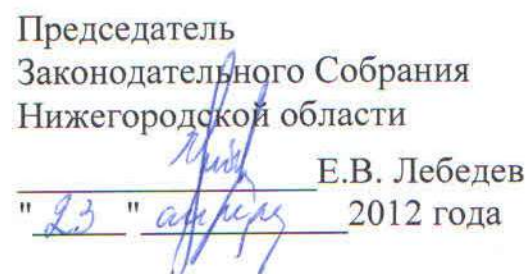 Председатель
Законодательного Собрания
Нижегородской области
Е.В. Лебедев
"23" апреля 2012 года